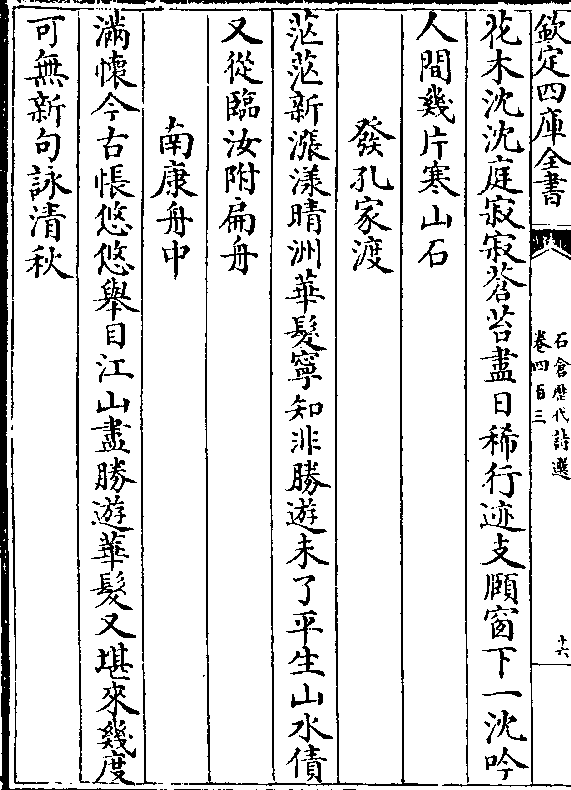 欽定四庫全書
石倉歷代詩選
卷四百三
十六
花木沈沈庭寂寂蒼苔盡日稀行迹支頤窗下一沈吟
人間幾片寒山石
發孔家渡
茫茫新漲漾晴洲華髮寧知非勝遊未了平生山水債
又從臨汝附扁舟
南康舟中
滿懷今古悵悠悠舉目江山盡勝遊華髮又堪來幾度
可無新句詠清秋